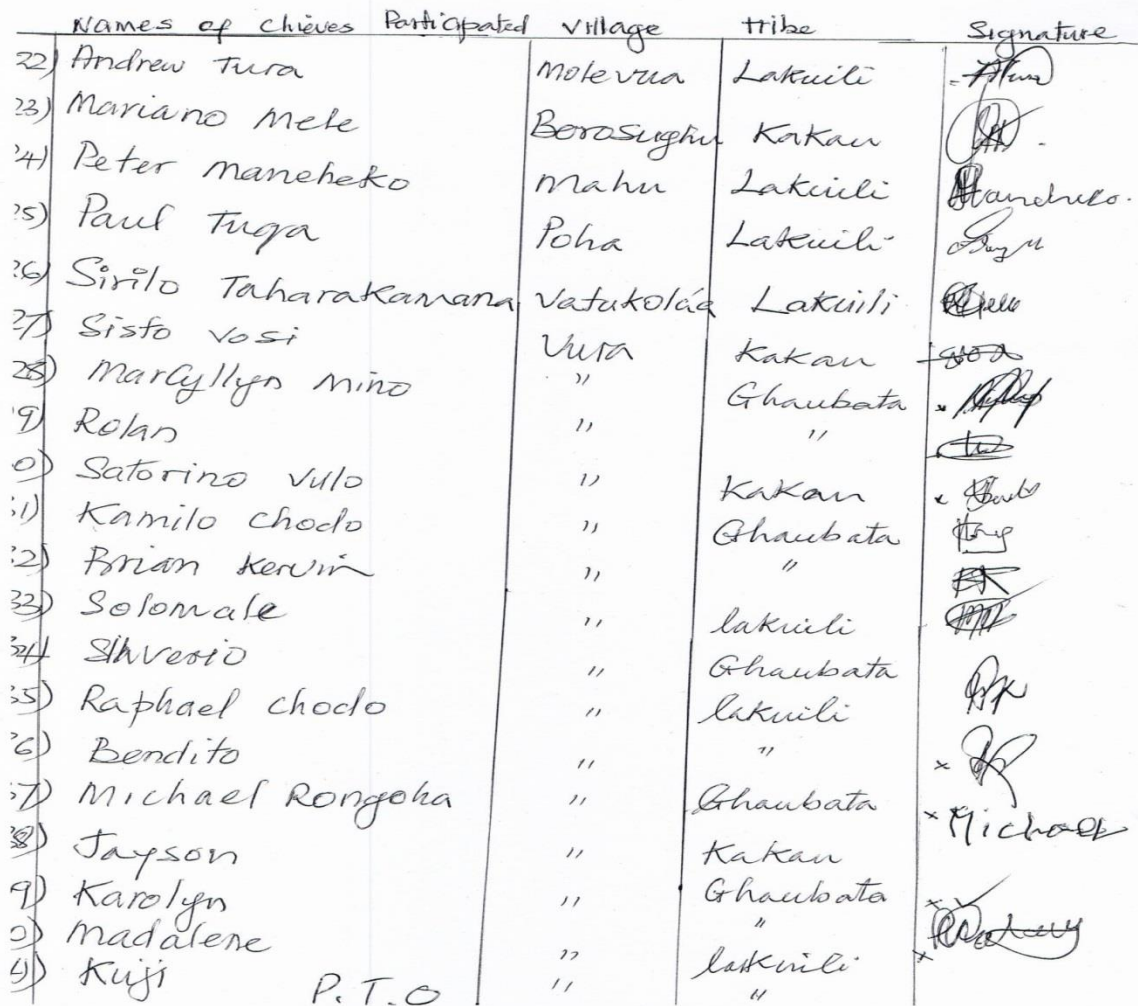 Names of chieves Participated Village tribe Signature
22) Andrew Tura Molevua Lakuili
23) Mariano Mele Borosughu Kakau
24) Peter Maneheko Mahu Lakuili
25) Paul Tuga Poha Lakuili
26) Sirilo Taharakamana Vatukoláa Lakuili
27) Sisto Vosi Vura Kakau
28) Marcyllyn Mino " Ghaubata
9) Rolan " "
0) Satorino Vulo " Kakau
31) Kamilo Chodo " Ghaubata
32) Brian Kervin " " BK
33) Solomale " lakuili
34) Silverio " Ghaubata
35) Raphael Chodo " lakuili
6) Bendito " " x
37) Michael Rongoha " Ghaubata x Michael
38) Jayson " Kakau
9) Karolyn " Ghaubata x
0) Madalene " "
Kuiji " lakuili x
P.T.O " "